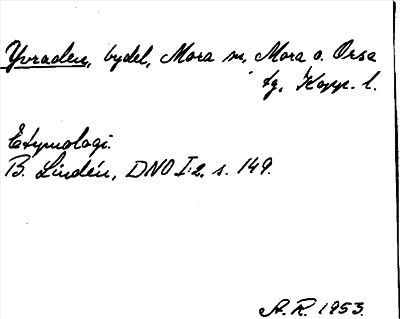 Yvraden, bydel, Mora sn, Mora o. Orsa
tg, Kopp. l.
Etymologi.
B. Lindén, DNO I:2, s. 149.
A. R. 1953.